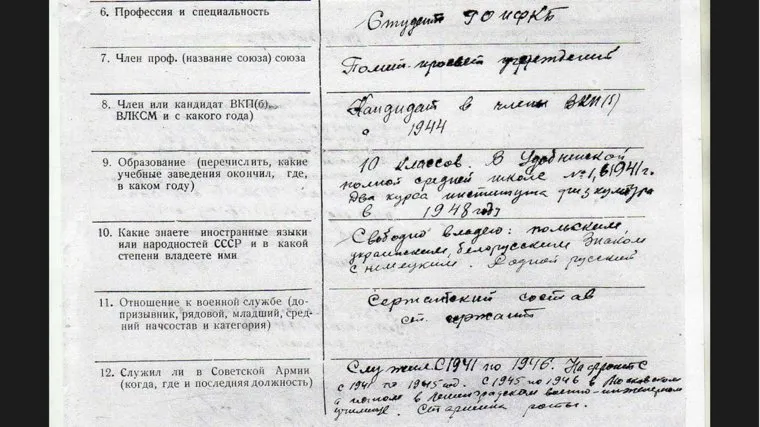 6. Профессия и специальность
Студент ГОИФКБ
7. Член проф. (название союза) союза
Полит-просвет учреждений
8. Член или кандидат ВКП(б),
ВЛКСМ и с какого года)
Кандидат в члены ВКП(б)
с 1944
9. Образование (перечислить, какие
учебные заведения окончил, где,
в каком году)
10 классов. В Удобненской
полной средней школе №1, в 1941 г.
Два курса института физкультура
в 1948 году
10. Какие знаете иностранные языки
или народностей СССР и в какой
степени владеете ими
Свободно владею: польским,
украинским, белорусским Знаком
с немецким. Родной русский
11. Отношение к военной службе (до-
призывник, рядовой, младший, сред-
ний начсостав и категория)
Сержантский состав
ст. сержант
12. Служил ли в Советской Армии
(когда, где и последняя должность)
Служил с 1941 по 1946. На фронте
с 1941 по 1945 год. С 1945 по 1946 в Московском
а потом в Ленинградском военно-инженерном
училище. Старшина роты.